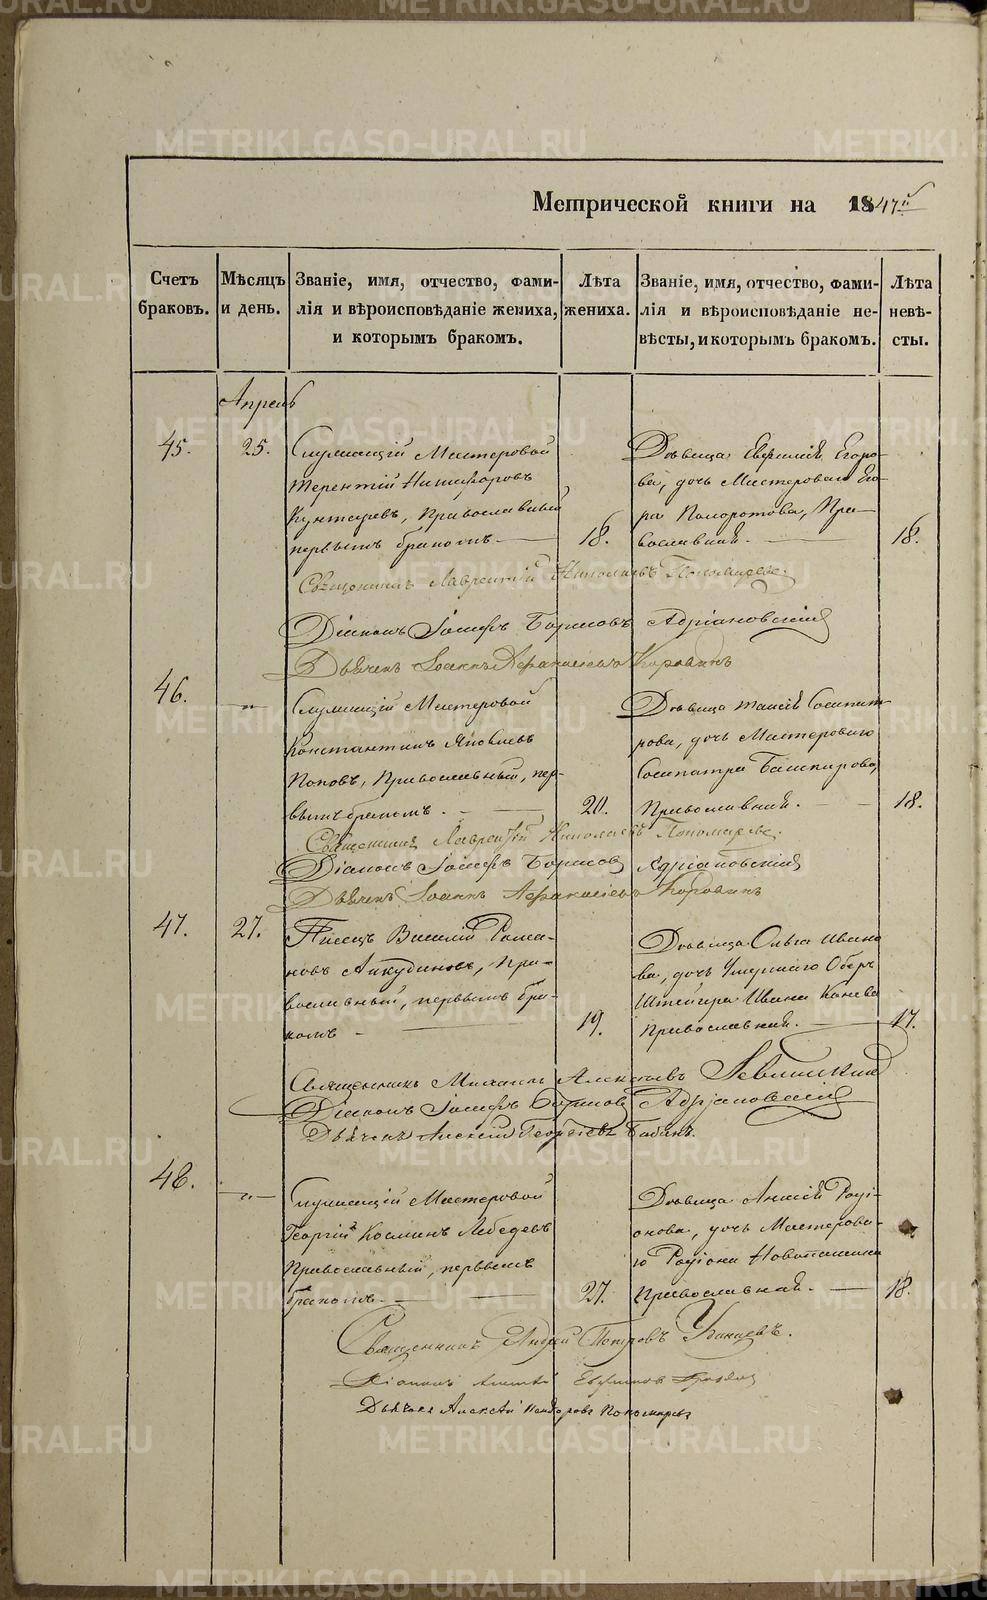 Метрической книги на 1847й
Счетъ браковъ.
Мѣсяцъ и день.
Званіе, имя, отчество, фамилія и вѣроисповѣданіе жениха, и которымъ бракомъ.
Лѣта жениха.
Званіе, имя, отчество, фамилія и вѣроисповѣданіе невѣсты, и которымъ бракомъ.
Лѣта невѣсты.
Апрель
45.
25.
Служащій Мастеровой
Терентій Никифоровъ
Православный
первымъ бракомъ.
18.
Дѣвица Егоро-
ва, дочь Мастероваго Его-
ра Пра-
вославная.
18.
Священникъ Лаврентій Николаевъ Пономаревъ.
Діаконъ Іосифъ Борисовъ Адріановскій
Дьячекъ Іоаннъ Афанасіевъ Коровинъ
46.
"
Служащій Мастеровой
Константинъ Яковлевъ
Поповъ, Православный, пер-
вымъ бракомъ.
20.
Дѣвица Таисія Сосипат-
рова, дочь Мастероваго
Сосипатра Башкирова,
Православная.
18.
Священникъ Лаврентій Николаевъ Пономаревъ.
Діаконъ Іосифъ Борисовъ Адріановскій
Дьячекъ Іоаннъ Афанасіевъ Коровинъ
47.
27.
Писецъ Василій Рома-
новъ Анкудиновъ, Пра-
вославный, первымъ бра-
комъ
19.
Дѣвица Ольга Ивано-
ва, дочь Умершаго Оберъ
Штейгера Ивана Канева
Православная.
17.
Священникъ Михаилъ Алексѣевъ Левицкій
Діаконъ Іосифъ Борисовъ Адріановскій
Дьячекъ Алексѣй Георгіевъ Бабинъ.
48.
"
Служащій Мастеровой
Георгій Косминъ Лебедевъ
Православный, первымъ
бракомъ.
27.
Дѣвица Анисія Родіо-
нова, дочь Мастерова-
го Родіона Новопашина
Православная.
18.
Священникъ Андрей Петровъ
Діаконъ
Дьячекъ Алексѣй Пономаревъ
METRIKI.GASO-URAL.RU